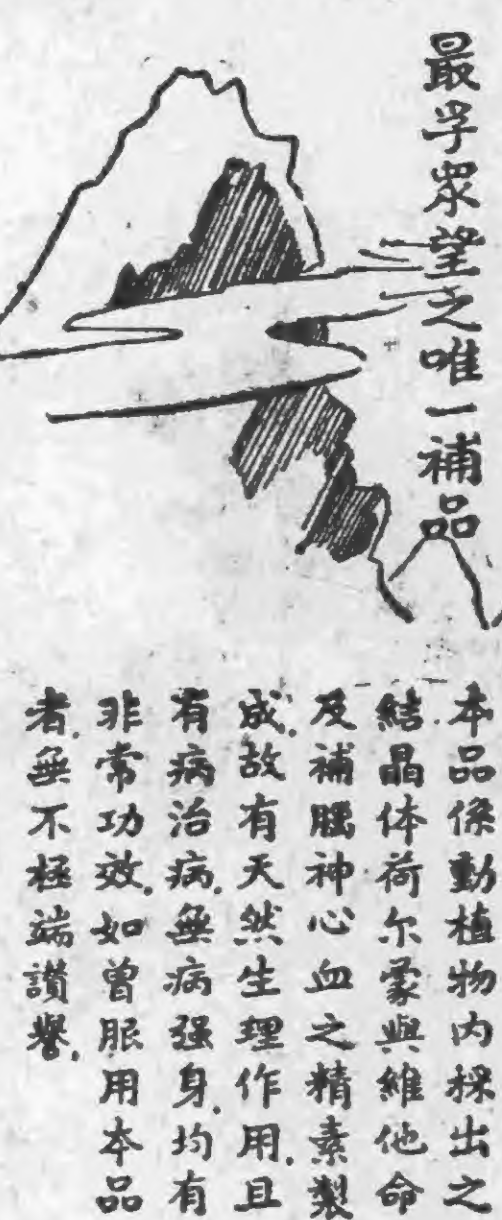 最孚眾望之唯一補品
本品係動植物内採出之
結晶体荷尔蒙與維他命
及補腦神心血之精素製
成.故有天然生理作用.且
有病治病.無病强身.均有
非常功效.如曾服用本品
者.無不極端讃譽.